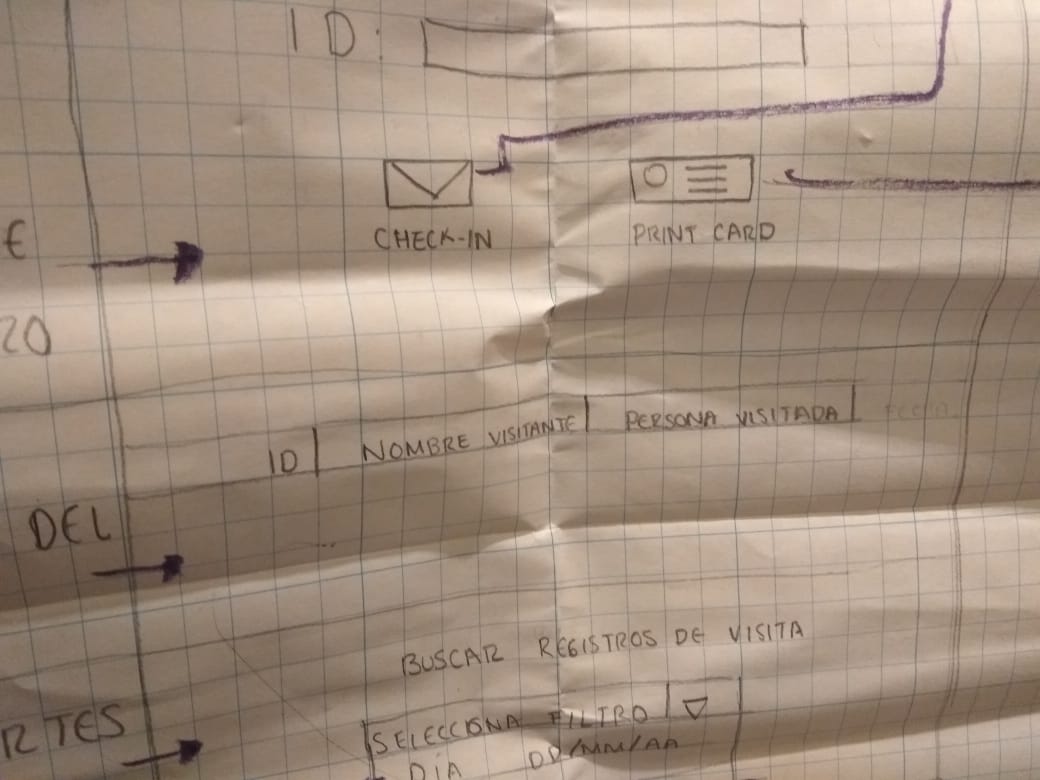 ID:
CHECK-IN PRINT CARD
€
20
ID NOMBRE VISITANTE PERSONA VISITADA FECHA
DEL
BUSCAR REGISTROS DE VISITA
RTES
SELECCIONA FILTRO
DIA DD/MM/AA